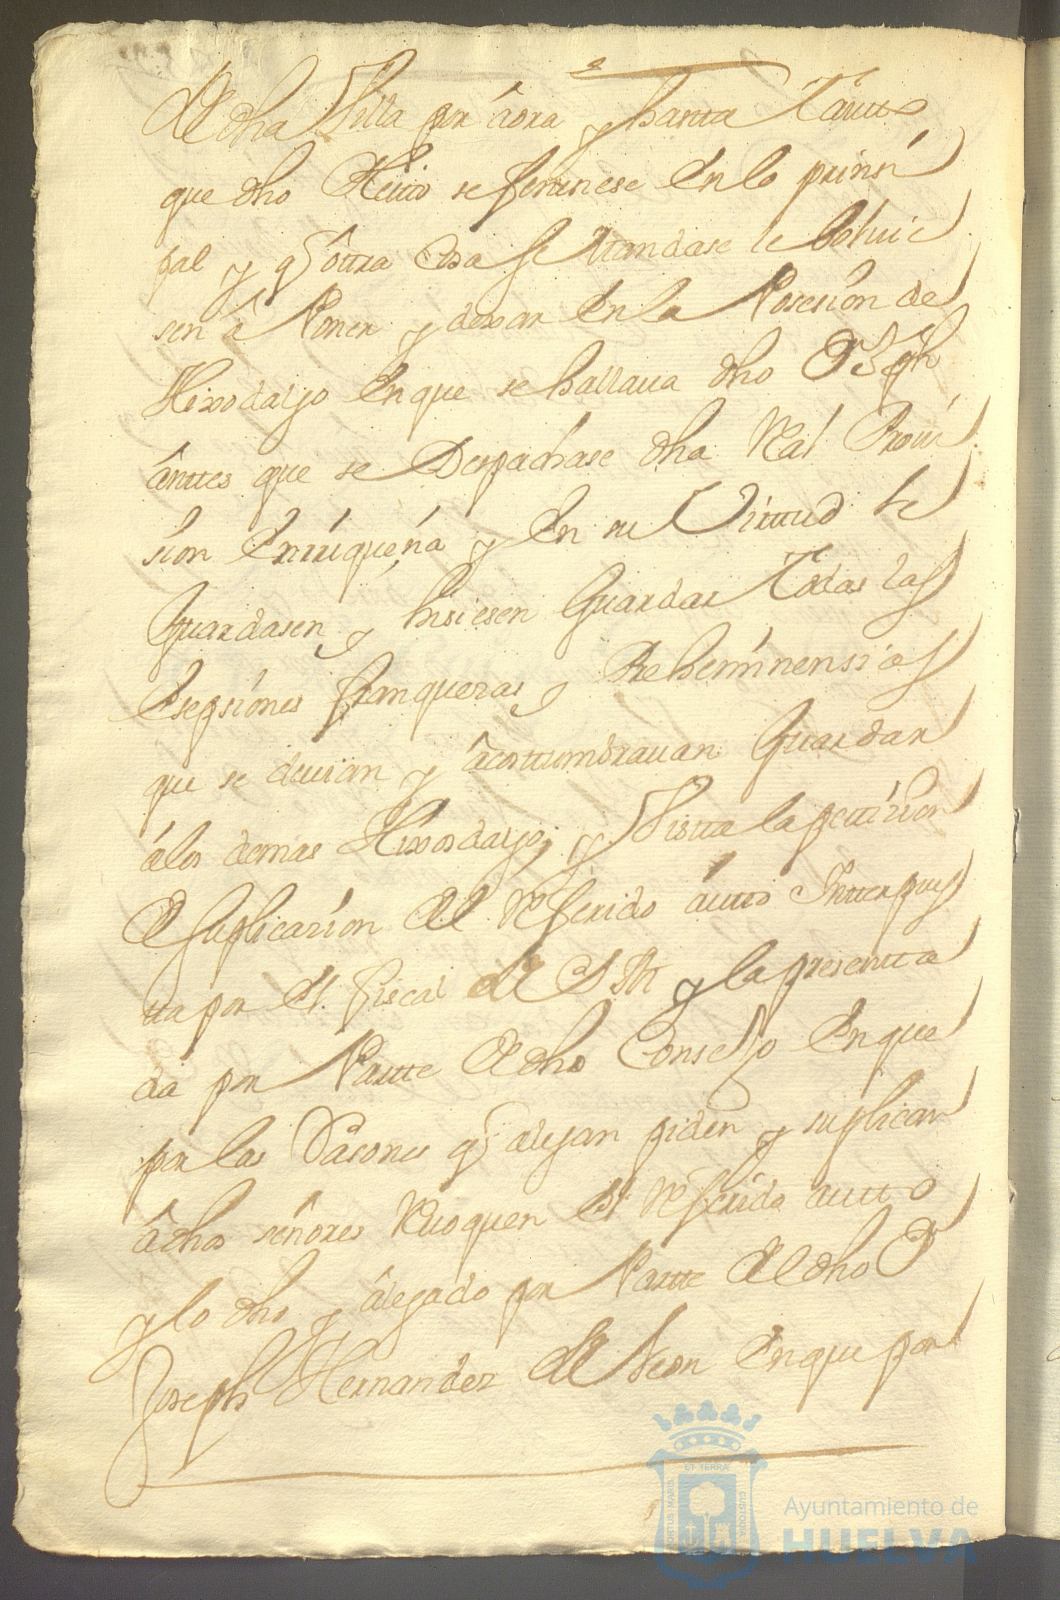 de dha Villa por aora y hasta tanto
que dho pleito se fenesiese en lo prinsi
pal y q̃ otra cosa se mandase le boluie
sen â Poner y dexar en la Posesion de
Hixodalgo en que se hallaua dho D. Joseph
ânttes que se Despachase dha Real Proui
sion Enrriqueña y en su Virttud le
Guardasen y hisiesen Guardar Todas las
esepsiones franquezas y Preheminensias
que se deuian y âcosttumbrauan Guardar
âlos demas Hixosdalgo; y Vistta la pettision
de suplicasion del Referido âutto Intterpues
tta por el fiscal de S M y la presentta
da por Partte de dho Consejo en que
por las Rasones q̃ alegan piden y suplican
âdhos señores Reuoquen el Referido autto
y lo dho y âlegado por Partte del dho D
Joseph Hernandez de Leon en que por
Ayuntamiento de
HUELVA